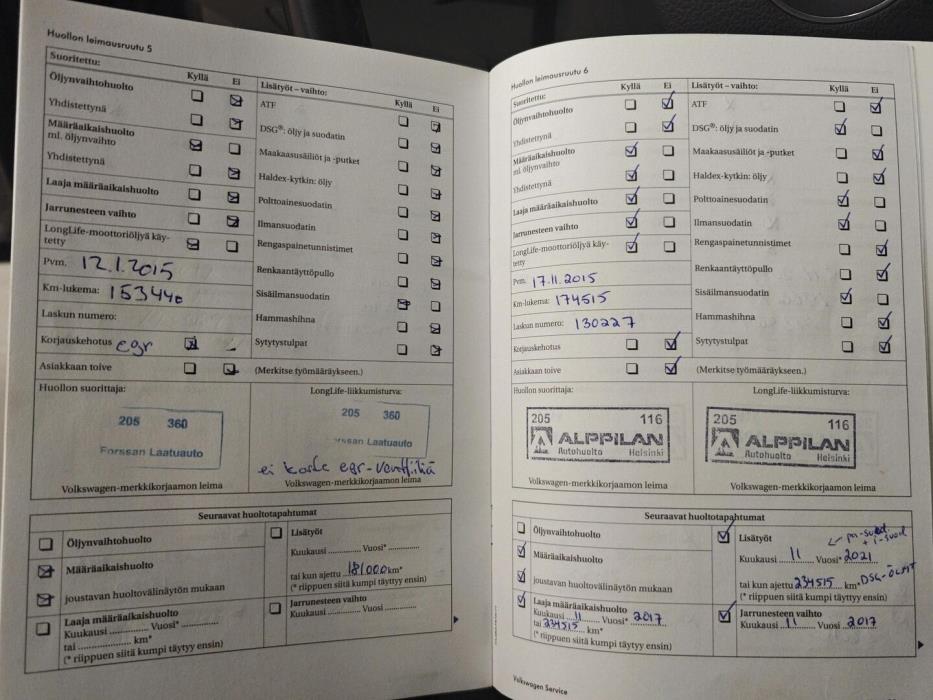 Huollon leimausruutu 5
Suoritettu:
Kyllä Ei
Öljynvaihtohuolto
Yhdistettynä
Määräaikaishuolto
ml. öljynvaihto
Yhdistettynä
Laaja määräaikaishuolto
Jarrunesteen vaihto
LongLife-moottoriöljyä käy-
tetty
Pvm. 12.1.2015
Km-lukema: 153440
Laskun numero:
Korjauskehotus egr
Asiakkaan toive
Lisätyöt – vaihto:
Kyllä Ei
ATF
DSG®: öljy ja suodatin
Maakaasusäiliöt ja -putket
Haldex-kytkin: öljy
Polttoainesuodatin
Ilmansuodatin
Rengaspainetunnistimet
Renkaantäyttöpullo
Sisäilmansuodatin
Hammashihna
Sytytystulpat
(Merkitse työmääräykseen.)
Huollon suorittaja:
205 360
Forssan Laatuauto
Volkswagen-merkkikorjaamon leima
LongLife-liikkumisturva:
205 360
Forssan Laatuauto
ei koske egr-venttiiliä
Volkswagen-merkkikorjaamon leima
Seuraavat huoltotapahtumat
Öljynvaihtohuolto
Määräaikaishuolto
joustavan huoltovälinäytön mukaan
Laaja määräaikaishuolto
Kuukausi ............. Vuosi* .............
tai ............. km*
(* riippuen siitä kumpi täytyy ensin)
Lisätyöt
Kuukausi ............. Vuosi* .............
tai kun ajettu 181000 km*
(* riippuen siitä kumpi täytyy ensin)
Jarrunesteen vaihto
Kuukausi ............. Vuosi .............
Huollon leimausruutu 6
Suoritettu:
Kyllä Ei
Öljynvaihtohuolto
Yhdistettynä
Määräaikaishuolto
ml. öljynvaihto
Yhdistettynä
Laaja määräaikaishuolto
Jarrunesteen vaihto
LongLife-moottoriöljyä käy-
tetty
Pvm. 17.11.2015
Km-lukema: 174515
Laskun numero: 130227
Korjauskehotus
Asiakkaan toive
Lisätyöt – vaihto:
Kyllä Ei
ATF
DSG®: öljy ja suodatin
Maakaasusäiliöt ja -putket
Haldex-kytkin: öljy
Polttoainesuodatin
Ilmansuodatin
Rengaspainetunnistimet
Renkaantäyttöpullo
Sisäilmansuodatin
Hammashihna
Sytytystulpat
(Merkitse työmääräykseen.)
Huollon suorittaja:
205 116
ALPPILAN
Autohuolto Helsinki
Volkswagen-merkkikorjaamon leima
LongLife-liikkumisturva:
205 116
ALPPILAN
Autohuolto Helsinki
Volkswagen-merkkikorjaamon leima
Seuraavat huoltotapahtumat
Öljynvaihtohuolto
Määräaikaishuolto
joustavan huoltovälinäytön mukaan
Laaja määräaikaishuolto
Kuukausi 11 Vuosi* 2017
tai 234515 km*
(* riippuen siitä kumpi täytyy ensin)
Lisätyöt
+ i-suod
Kuukausi 11 Vuosi* 2021
tai kun ajettu 234515 km*
(* riippuen siitä kumpi täytyy ensin)
Jarrunesteen vaihto
Kuukausi 11 Vuosi 2017
Volkswagen Service